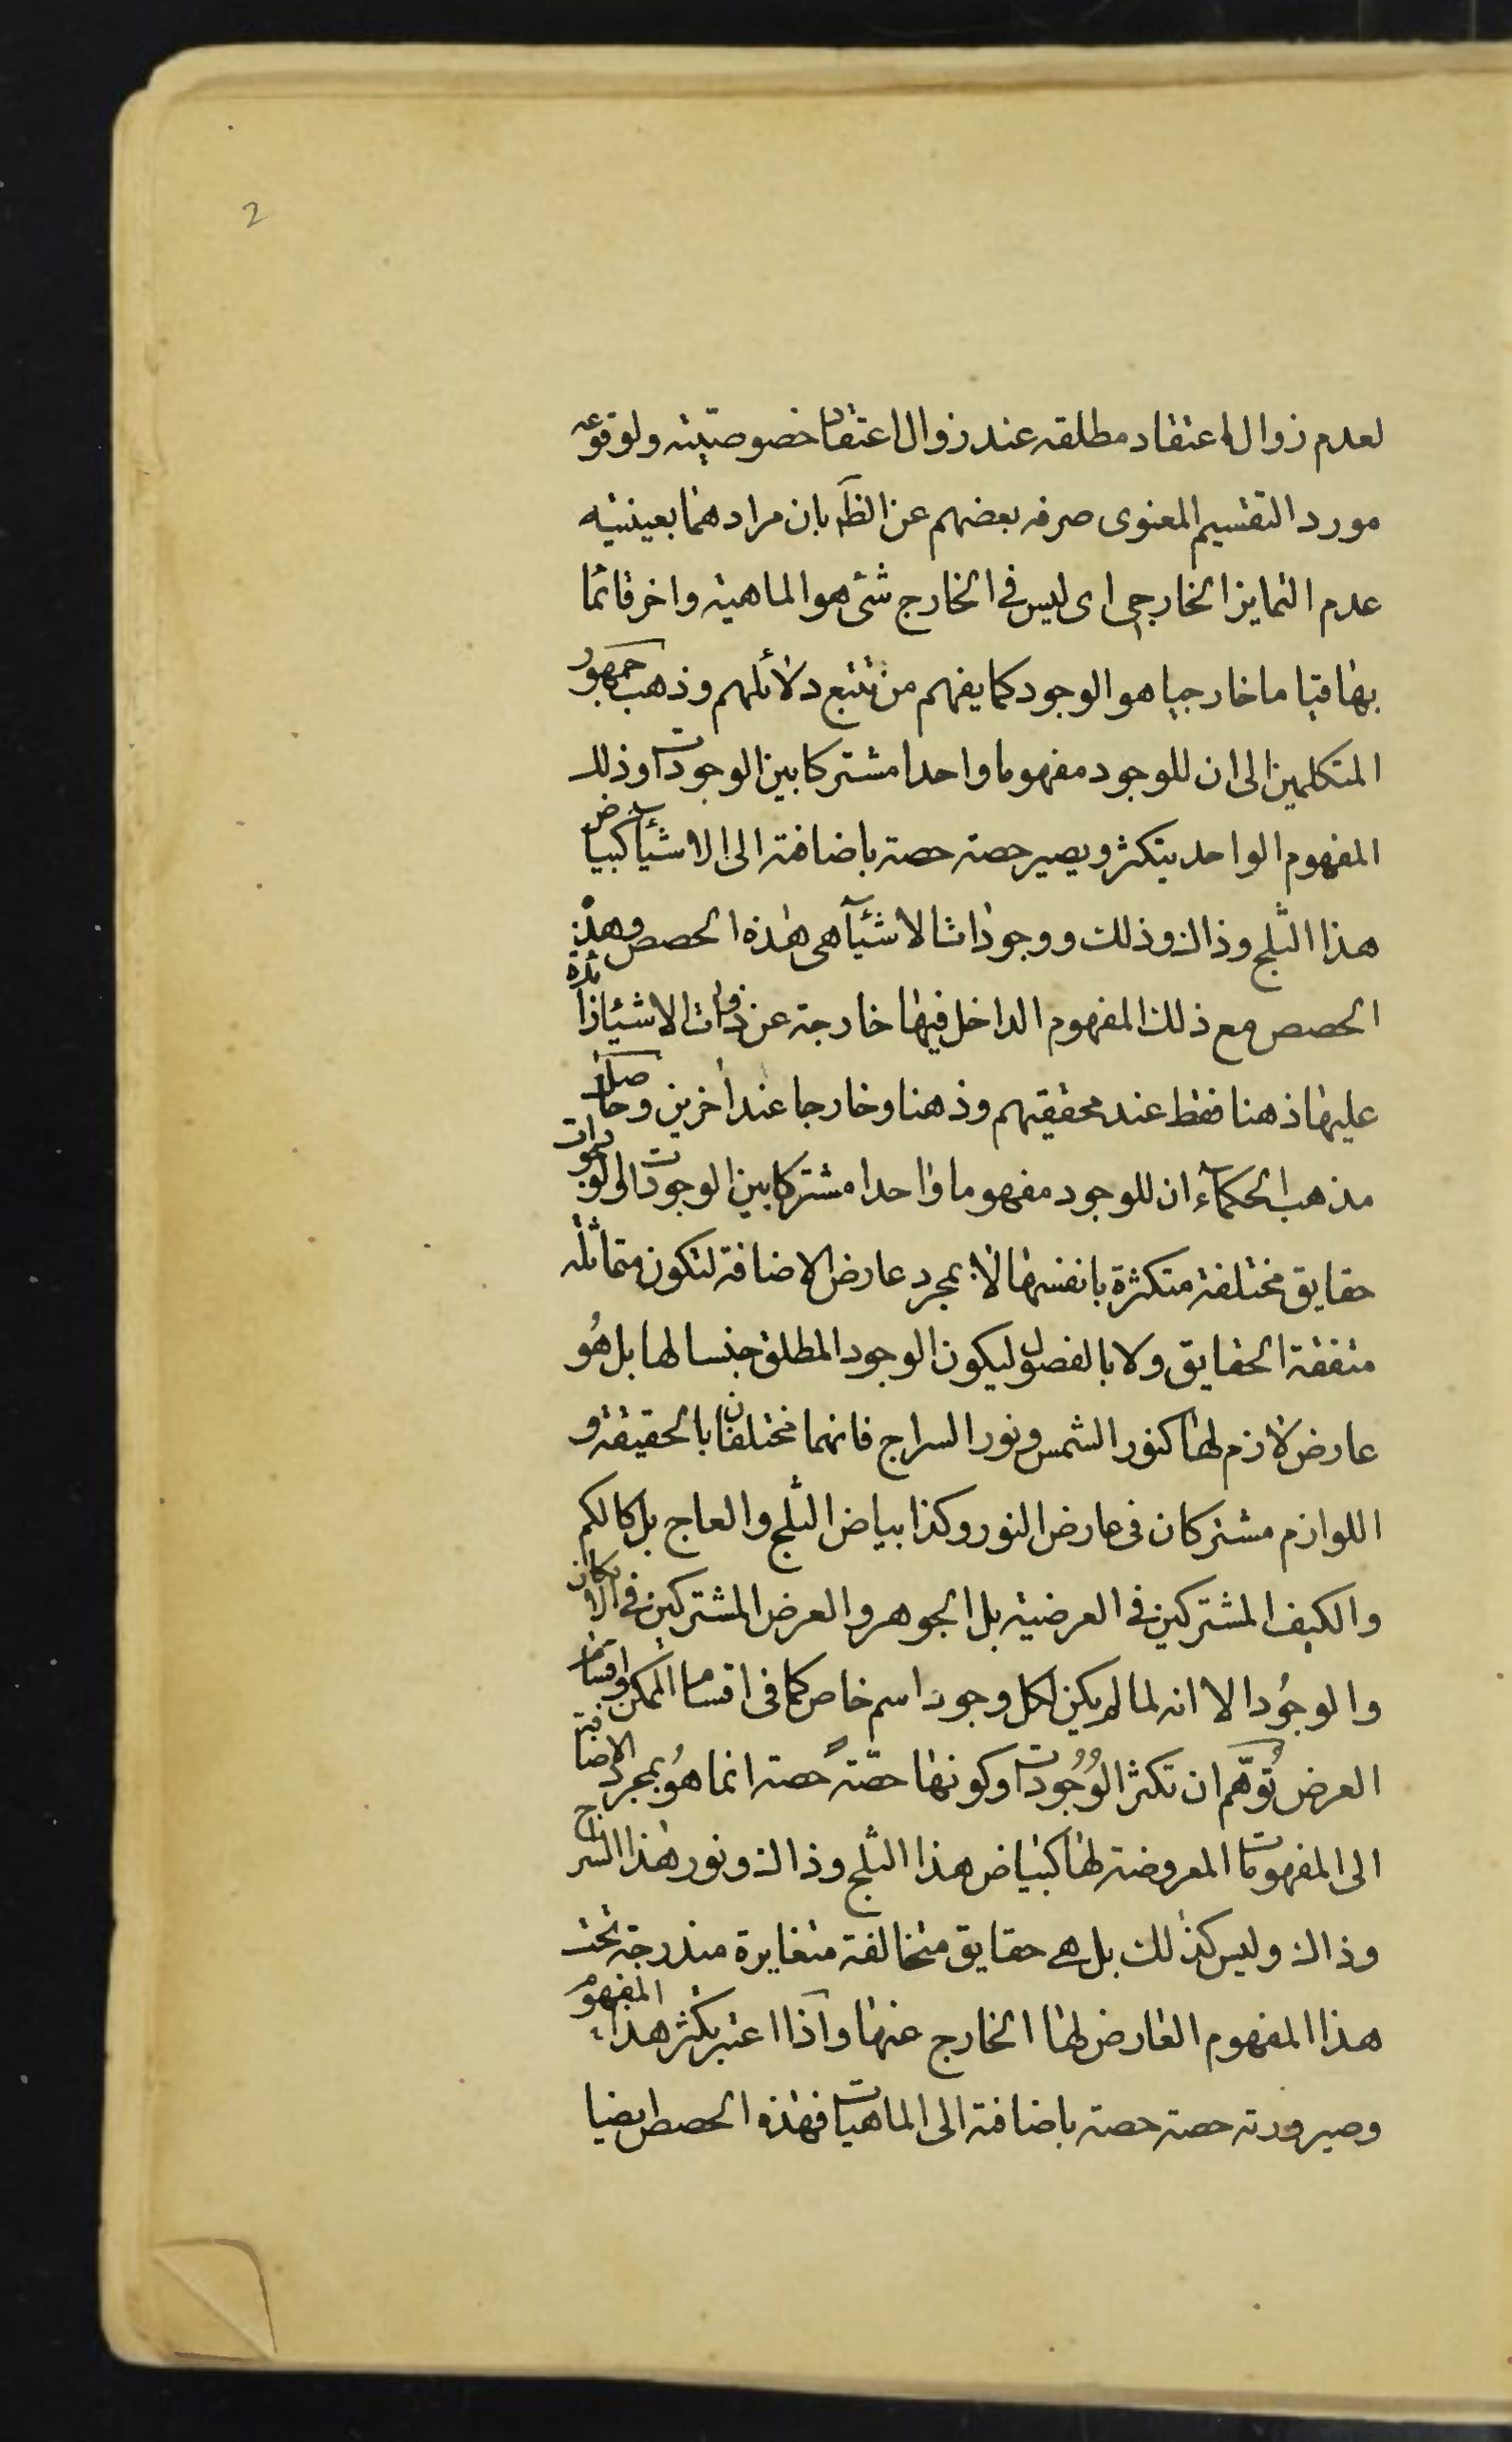 2
لعدم زوال اعتقاد مطلقه عند زوال اعتقاد خصوصيته ولوقوعه
مورد التقسيم المعنوى صرفه بعضهم عن الظ بان مرادهما بعينيته
عدم التمايز الخارجى اى ليس فى الخارج شئ هو الماهية واخر قائما
بها قياما خارجيا هو الوجود كما يفهم من تتبع دلائلهم وذهب جمهور
المتكلمين الى ان للوجود مفهوما واحدا مشتركا بين الوجودات وذلك
المفهوم الواحد يتكثر ويصير حصة حصة باضافته الى الاشيآ كبياض
هذا الثلج وذاك وذلك ووجودات الاشيآ هى هذه الحصص وهذه
الحصص مع ذلك المفهوم الداخل فيها خارجة عن ذوات الاشيا زائدة
عليها ذهنا فقط عند محققيهم وذهنا وخارجا عند آخرين وحاصل
مذهب الحكمآء ان للوجود مفهوما واحدا مشتركا بين الوجودات والوجودات
حقايق مختلفة متكثرة بانفسها لا بمجرد عارض الاضافة لتكون متماثلة
متفقة الحقايق ولا بالفصول ليكون الوجود المطلق جنسا لها بل هو
عارض لازم لها كنور الشمس ونور السراج فانهما مختلفان بالحقيقة و
اللوازم مشتركان فى عارض النور وكذا بياض الثلج والعاج بل كالكم
والكيف المشتركين فى العرضية بل الجوهر والعرض المشتركين فى الامكان
والوجود الا انه لما لم يكن لكل وجود اسم خاص كما فى اقسام الممكن واقسام
العرض توهم ان تكثر الوجودات وكونها حصة حصة انما هو بمجرد الاضافة
الى المفهومات المعروضة لها كبياض هذا الثلج وذاك ونور هذا السراج
وذاك وليس كذلك بل هى حقايق متخالفة متغايرة مندرجة تحت
هذا المفهوم العارض لها الخارج عنها واذا اعتبر تكثر هذا المفهوم
وصيرورته حصة حصة باضافته الى الماهيات فهذه الحصص ايضا